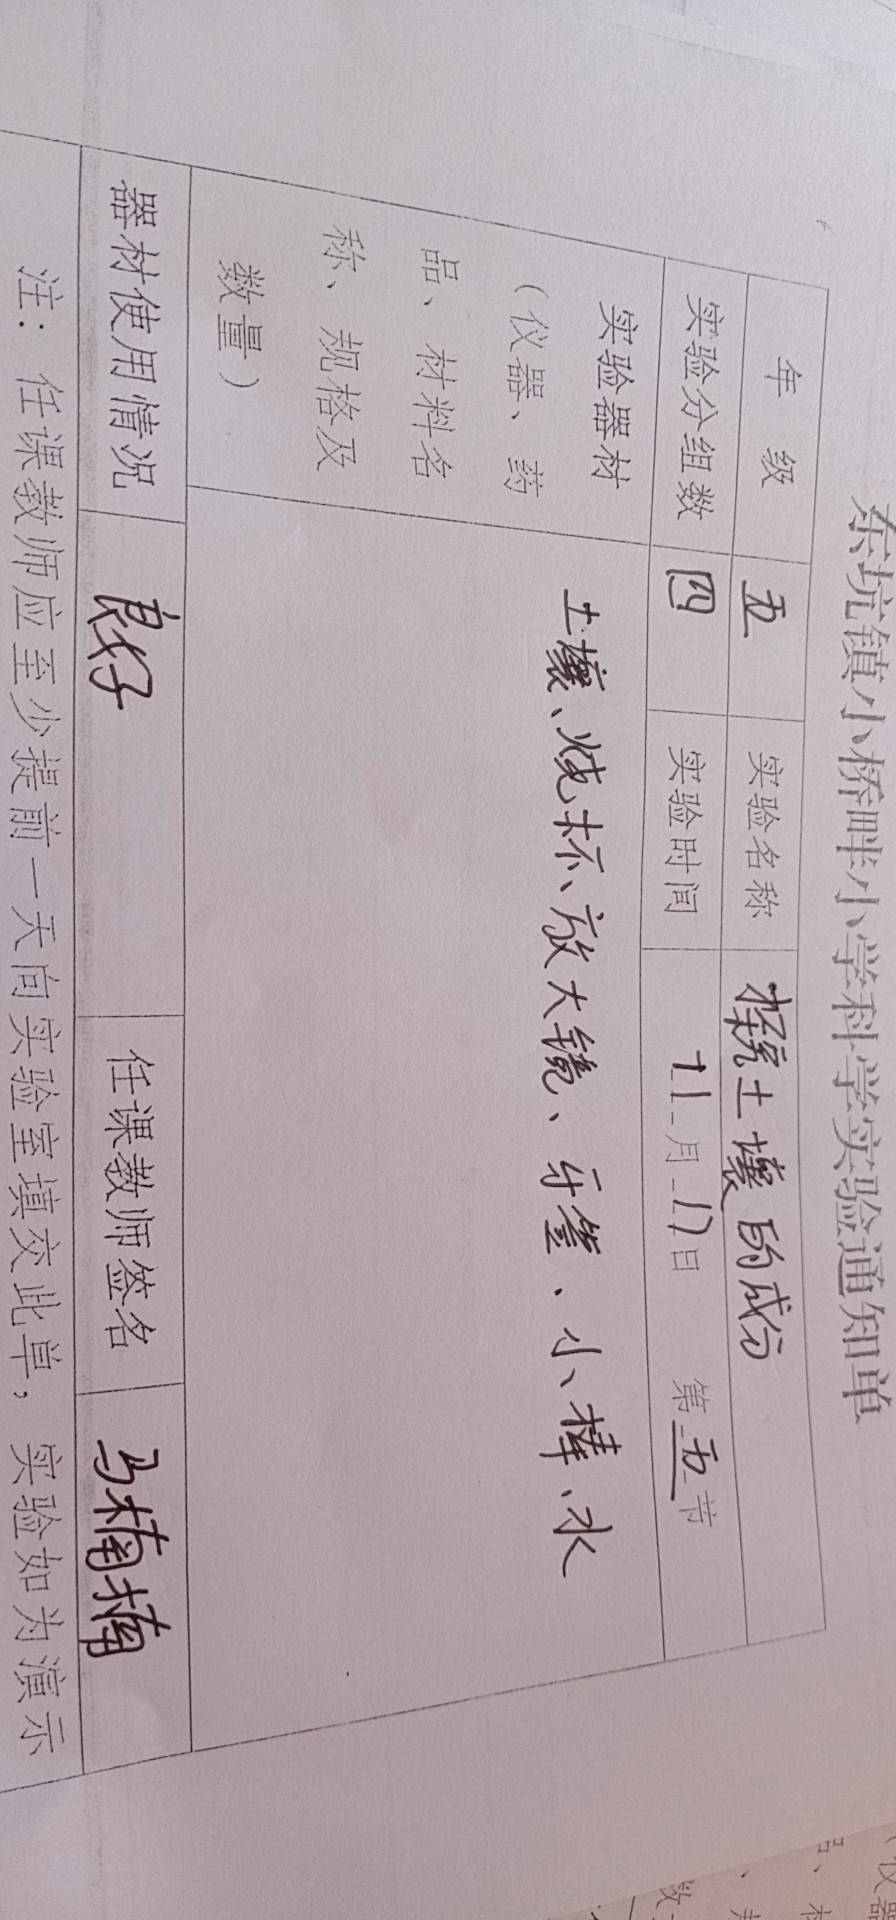 东坑镇小桥畔小学科学实验通知单
年 级 五 实验名称 探究土壤的成分
实验分组数 四 实验时间 11月17日 第五节
实验器材
（仪器、药
品、材料名
称、规格及
数量）
土壤、烧杯、放大镜、牙签、小棒、水
器材使用情况 良好 任课教师签名 马楠楠
注：任课教师应至少提前一天向实验室填交此单，实验如为演示